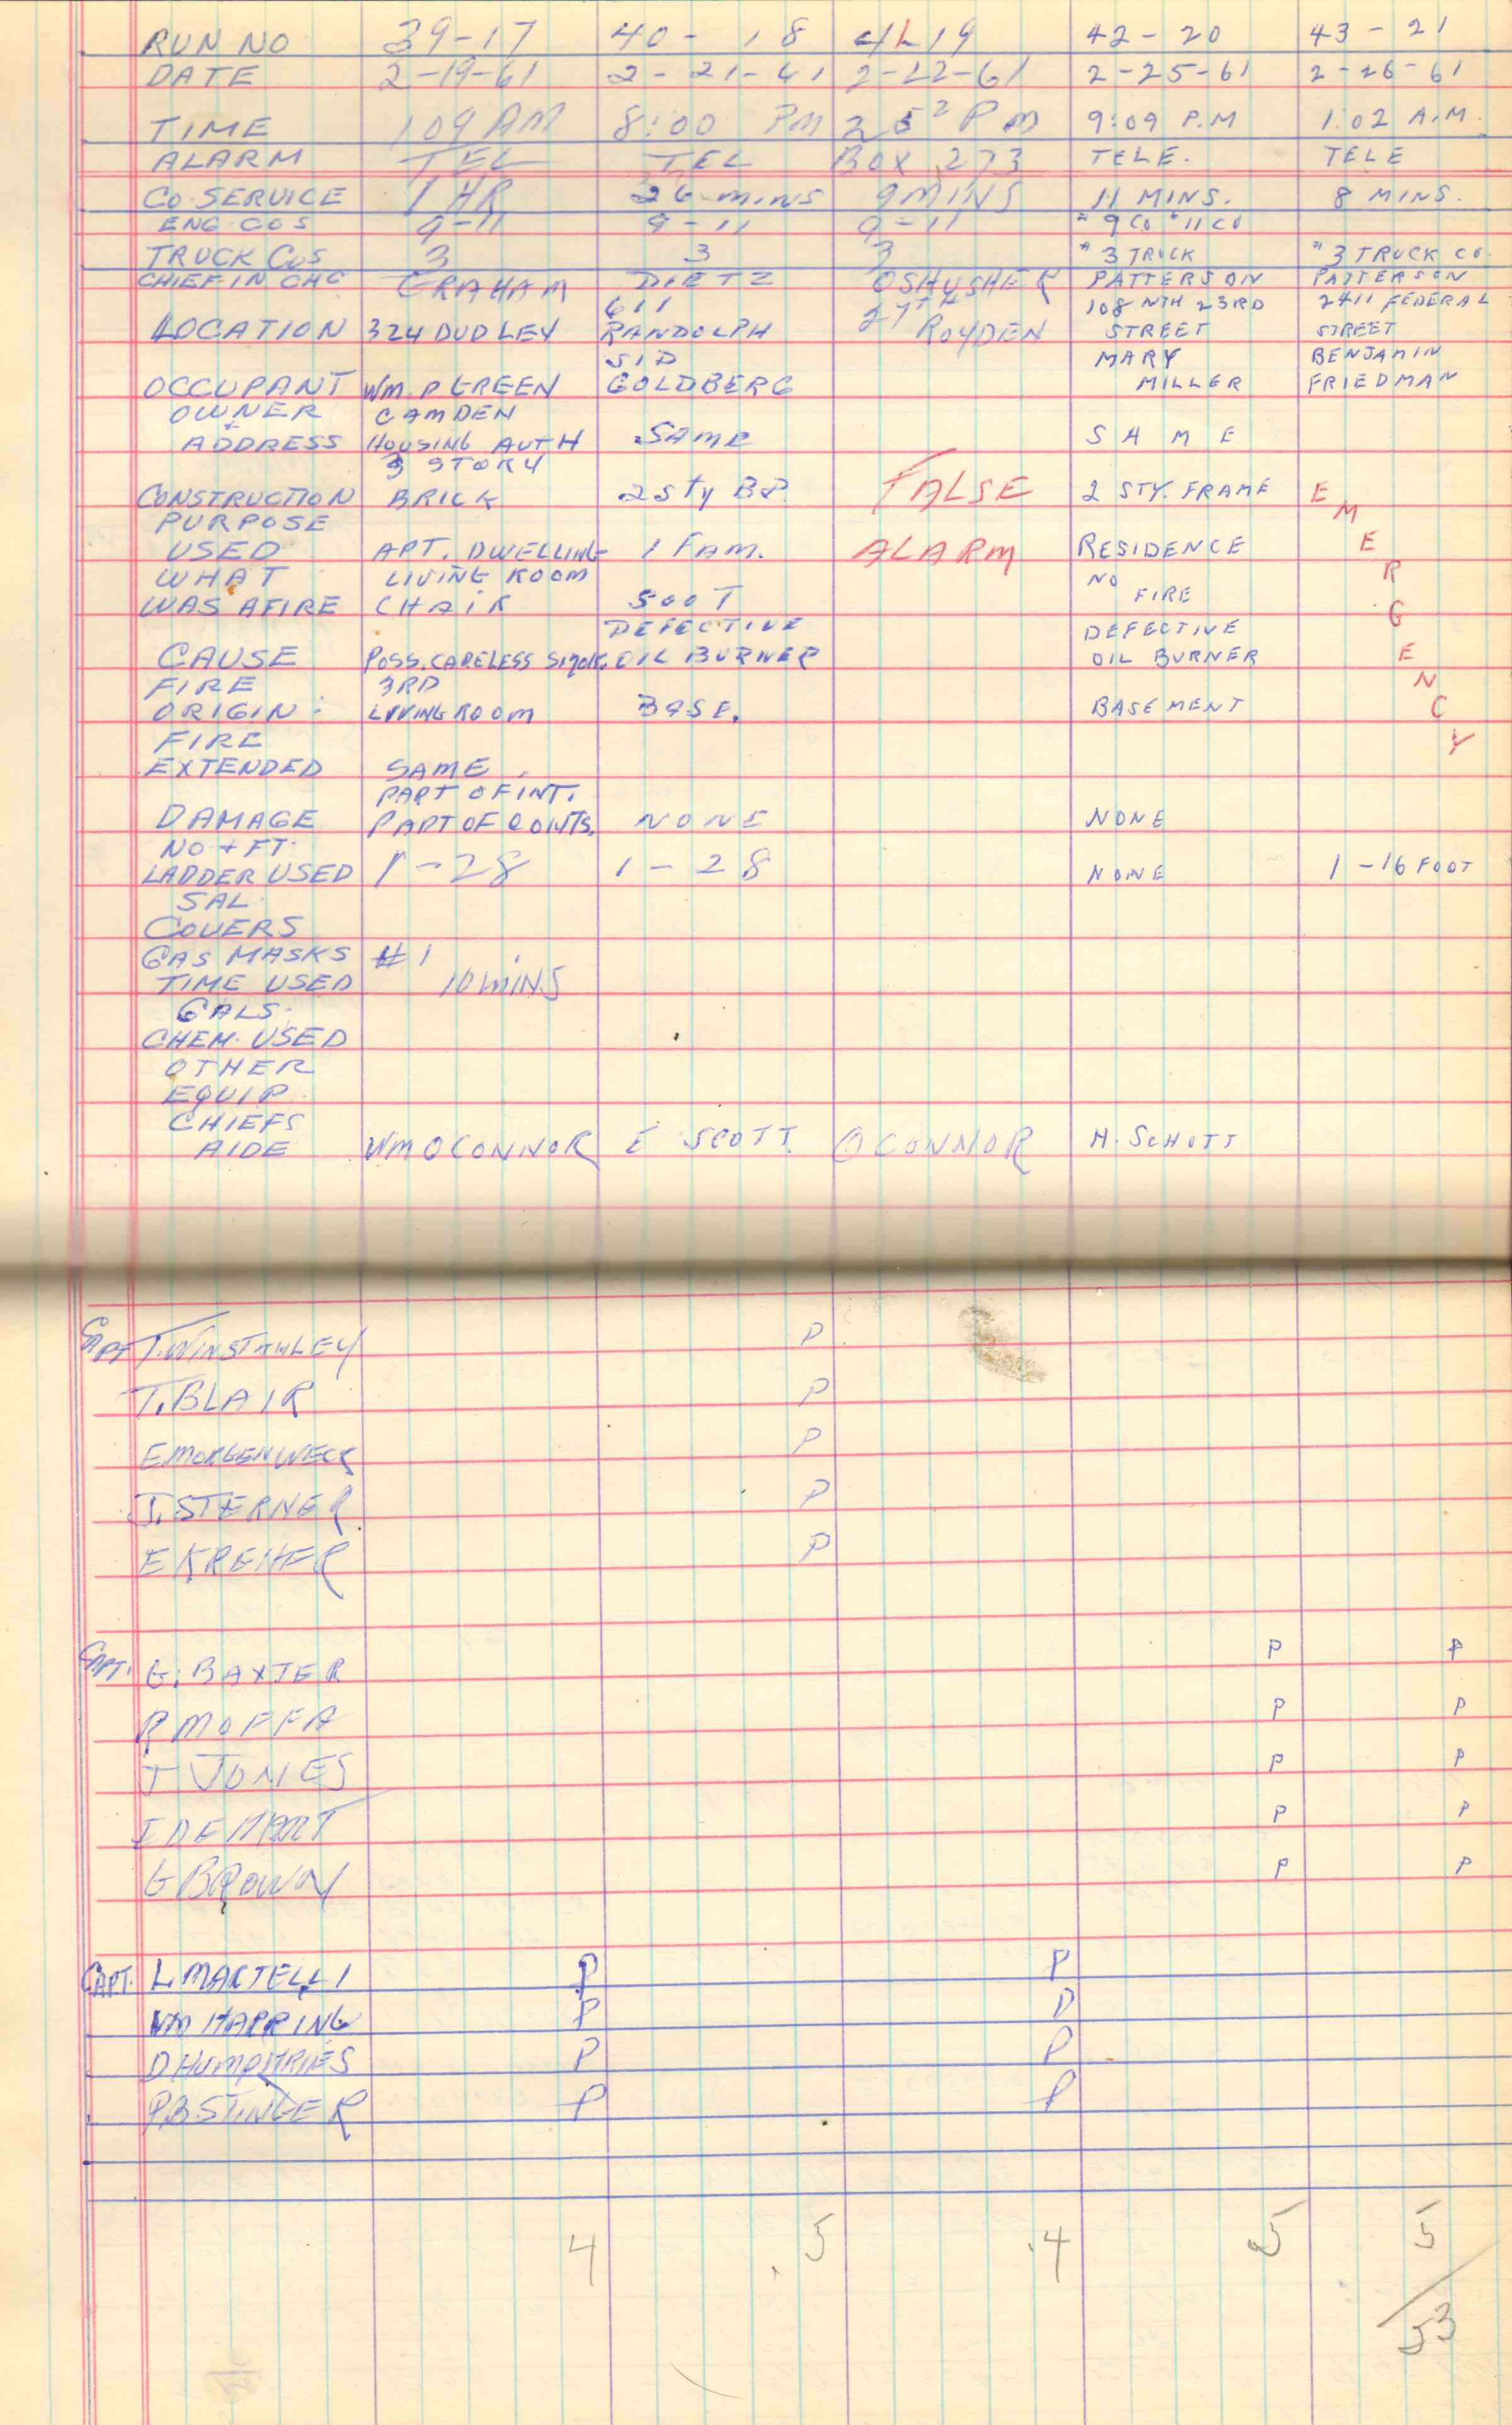 RUN NO 39-17 40-18 41 19 42-20 43-21
DATE 2-19-61 2-21-61 2-22-61 2-25-61 2-26-61
TIME 109 AM 8:00 PM 2 52 PM 9:09 P.M 1:02 A.M.
ALARM TEL TEL BOX 273 TELE. TELE
CO. SERVICE 1 HR 26 mins 9 MINS 11 MINS. 8 MINS.
ENG. COS 9-11 9-11 9-11 " 9 CO " 11 CO
TRUCK COS 3 3 3 " 3 TRUCK " 3 TRUCK CO.
CHIEF IN CHG GRAHAM DIETZ PATTERSON PATTERSON
611 27TH 108 NTH 23RD 2411 FEDERAL
LOCATION 324 DUDLEY RANDOLPH ROYDEN STREET STREET
SID MARY BENJAMIN
OCCUPANT WM. P GREEN GOLDBERG MILLER FRIEDMAN
OWNER CAMDEN
+ ADDRESS HOUSING AUTH SAME SAME
3 STORY
CONSTRUCTION BRICK 2 STY BR. FALSE 2 STY. FRAME EMERGENCY
PURPOSE
USED APT. DWELLING 1 FAM. ALARM RESIDENCE
WHAT LIVING ROOM NO
WAS AFIRE CHAIR SOOT FIRE
DEFECTIVE DEFECTIVE
CAUSE POSS. CARELESS SMOK. OIL BURNER OIL BURNER
FIRE 3RD
ORIGIN. LIVING ROOM BASE. BASEMENT
FIRE
EXTENDED SAME
PART OF INT.
DAMAGE PART OF CONTS. NONE NONE
NO + FT.
LADDER USED 1-28 1-28 NONE 1-16 FOOT
SAL.
COVERS
GAS MASKS #1
TIME USED 10 MINS
GALS.
CHEM. USED
OTHER
EQUIP.
CHIEFS
AIDE WM OCONNOR E SCOTT OCONNOR H. SCHOTT
CAPT T. WINSTANLEY P
T. BLAIR P
E MORGENWECK P
J. STERNER P
E KREHER P
CAPT. G. BAXTER P P
R MOFFA P P
J JONES P P
P P
G BROWN P P
CAPT. L. MARTELLI P P
WM HARRING P P
D HUMPHRIES P P
P.B. STINGER P P
4 5 4 5 5
53